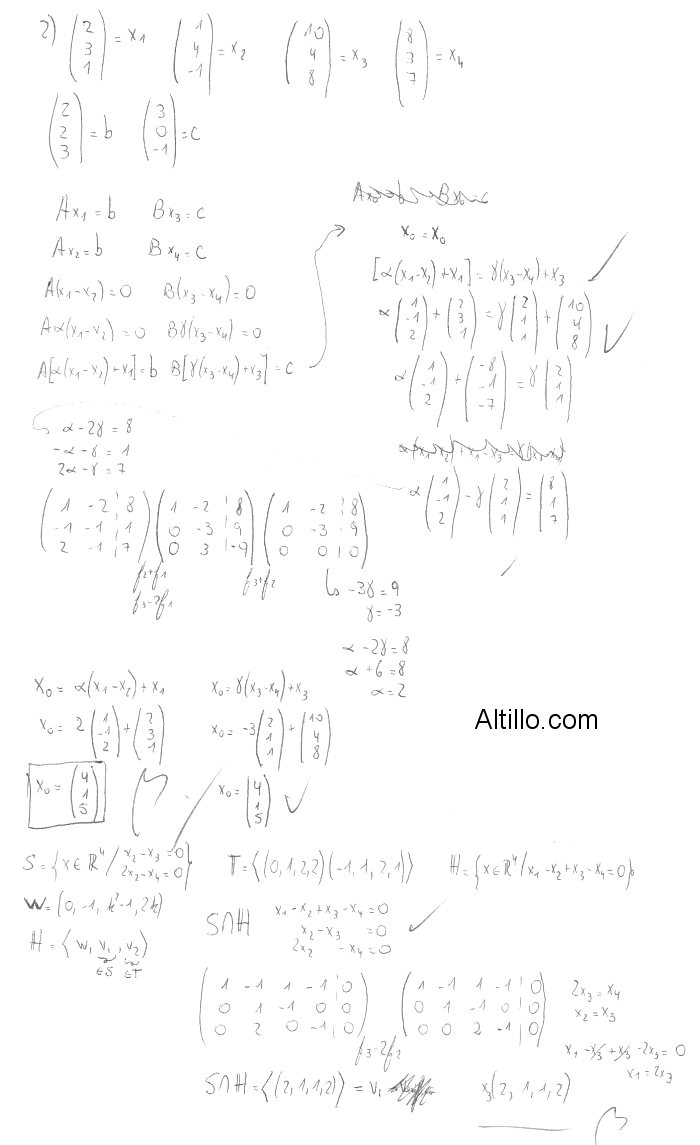 2) (2 3 1) = x1 (1 4 -1) = x2 (10 4 8) = x3 (8 3 7) = x4
(2 2 3) = b (3 0 -1) = c
Ax1 = b Bx3 = c
Ax2 = b Bx4 = c
A(x1-x2) = 0 B(x3-x4) = 0
Aα(x1-x2) = 0 Bγ(x3-x4) = 0
A[α(x1-x2)+x1] = b B[γ(x3-x4)+x3] = c
x0 = x0
[α(x1-x2)+x1] = γ(x3-x4)+x3
α(1 -1 2) + (2 3 1) = γ(2 1 1) + (10 4 8)
α(1 -1 2) + (-8 -1 -7) = γ(2 1 1)
α(1 -1 2) - γ(2 1 1) = (8 1 7)
α - 2γ = 8
-α - γ = 1
2α - γ = 7
(1 -2 | 8) (1 -2 | 8) (1 -2 | 8)
(-1 -1 | 1) (0 -3 | 9) (0 -3 | 9)
(2 -1 | 7) (0 3 | -9) (0 0 | 0)
f2+f1 f3+f2
f3-2f1
-3γ = 9
γ = -3
α - 2γ = 8
α + 6 = 8
α = 2
x0 = α(x1-x2)+x1 x0 = γ(x3-x4)+x3
x0 = 2(1 -1 2) + (2 3 1) x0 = -3(2 1 1) + (10 4 8)
x0 = (4 1 5) x0 = (4 1 5)
Altillo.com
S = {x∈R⁴/ x2-x3=0
2x2-x4=0} T = <(0,1,2,2)(-1,1,2,1)> H = {x∈R⁴/x1-x2+x3-x4=0}
W = (0, -1, k²-1, 2k)
H = <w, v1, v2>
∈S ∈T
S∩H x1-x2+x3-x4=0
x2-x3 =0
2x2 -x4=0
(1 -1 1 -1 | 0) (1 -1 1 -1 | 0)
(0 1 -1 0 | 0) (0 1 -1 0 | 0)
(0 2 0 -1 | 0) (0 0 2 -1 | 0)
f3-2f2
2x3 = x4
x2 = x3
x1 - x3 + x3 - 2x3 = 0
x1 = 2x3
S∩H = <(2,1,1,2)> = v1 x3(2, 1, 1, 2)